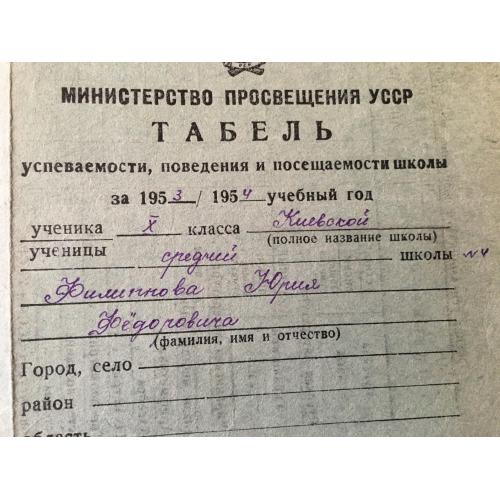 МИНИСТЕРСТВО ПРОСВЕЩЕНИЯ УССР
ТАБЕЛЬ
успеваемости, поведения и посещаемости школы
за 1953/1954 учебный год
ученика X класса Киевской
(полное название школы)
ученицы средней школы №4
Филиппова Юрия
Фёдоровича
(фамилия, имя и отчество)
Город, село
район
область